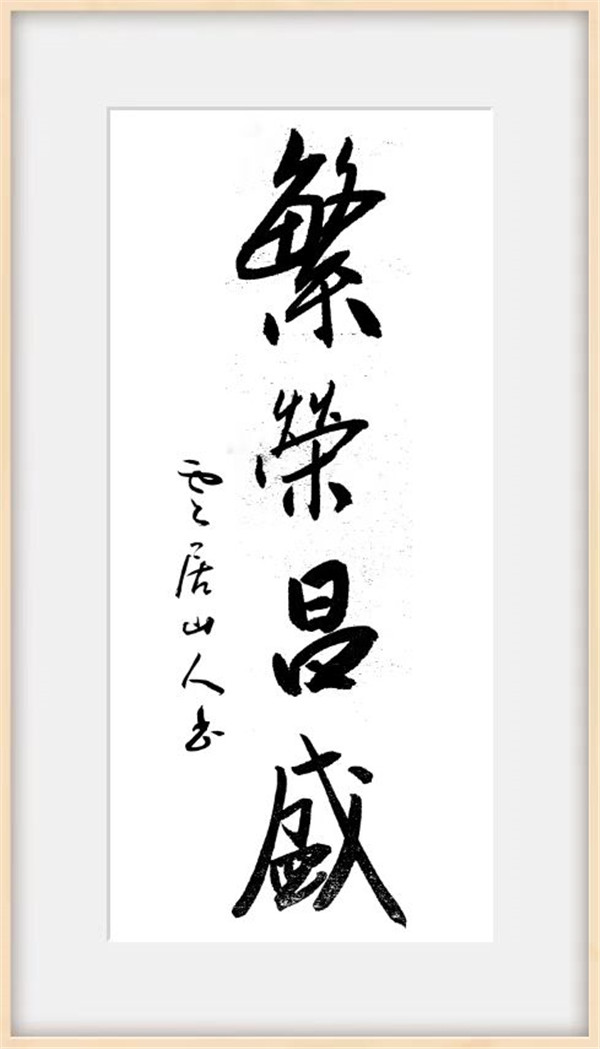 繁榮昌盛
雲居山人书